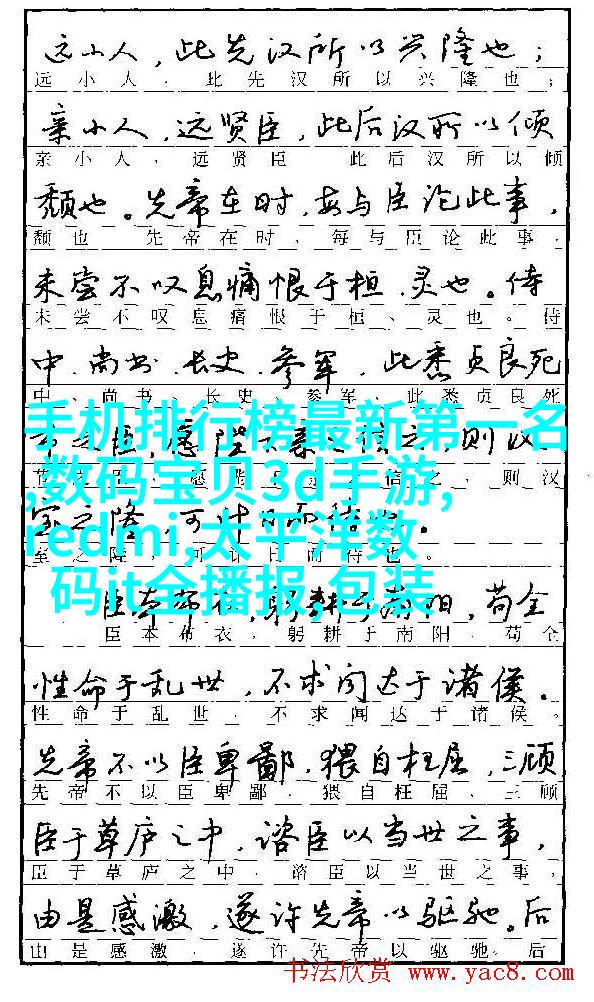 远小人,此先汉所以兴隆也;
远小人,此先汉所以兴隆也;
亲小人,远贤臣,此后汉所以倾
亲小人,远贤臣 此后汉所以倾
颓也。先帝在时,每与臣论此事,
颓也 先帝在时,每与臣论此事,
未尝不叹息痛恨于桓、灵也。侍
未尝不叹息痛恨于桓、灵也。侍
中、尚书、长史、参军,此悉贞良死
中、尚书、长史、参军,此悉贞良死
手机排行榜最新第一名
,数码宝贝3d手游,
redmi,太平洋数
码it全播报,包装
臣,愿陛 信之,则汉
信之,则汉
室之隆,可计日而待也。
室之隆,可计日而待也。
臣本布衣,躬耕于南阳,苟全
臣本布衣,躬耕于南阳,苟全
性命于乱世,不求闻达于诸侯。
性命于乱世,不求闻达于诸侯。
先帝不以臣卑鄙,猥自枉屈,三顾
先帝不以臣卑鄙,猥自枉屈、三顾
臣于草庐之中,谘臣以当世之事,
臣于草庐之中,谘臣以当世之事,
由是感激,遂许先帝以驱驰。后
由是感激,遂许先帝以驱驰。后
书法欣赏 www.yac8.com